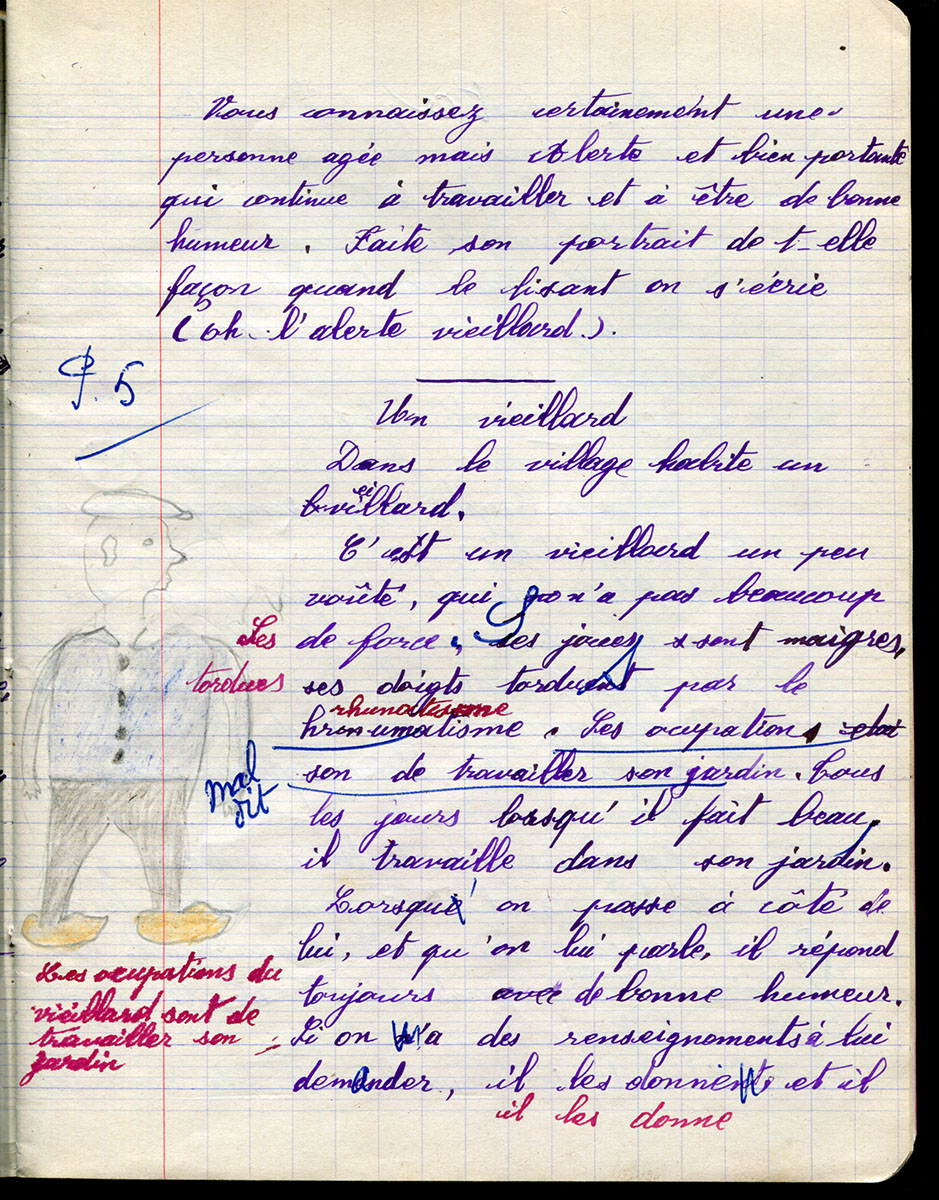 Vous connaissez certainement une
personne agée mais Alerte et bien portante
qui continue à travailler et à être de bonne
humeur. Faite son portrait de t-elle
façon quand le lisant on s'écrie
(oh. l'alerte vieillard.).
P. 5
Un vieillard
Dans le village habite un
vieillard.
C'est un vieillard un peu
voûté, qui n'a pas beaucoup
Ses
de force, ses joues sont maigres,
tordues
ses doigts torduent par le
rhumatisme
hrumatisme. Les ocupations
Mal dit
son de travailler son jardin. Tous
les jours lorsqu'il fait beau,
il travaille dans son jardin.
Lorsqu' on passe à côté de
lui, et qu'on lui parle, il répond
toujours avec de bonne humeur.
Si on a des renseignoments à lui
demander, il les donnent et il
il les donne
Les ocupations du
vieillard sont de
travailler son
jardin